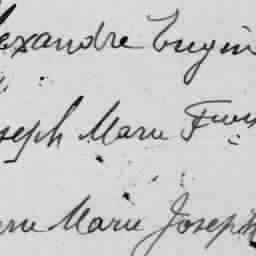 lexandre Eugin
seph Marie Fran
rre Marie Joseph